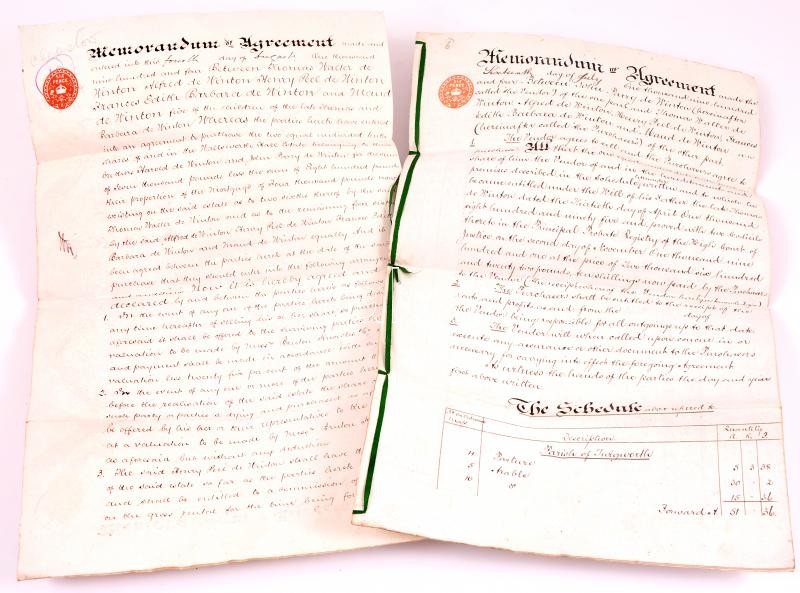 Memorandum of Agreement made and
entered into this fourth day of August One thousand
nine hundred and four Between Thomas Walter de
Winton Alfred de Winton Henry Peel de Winton
Frances Edith Barbara de Winton and Maud
de Winton five of the children of the late Thomas and
Barbara de Winton Whereas the parties hereto have entered
into an agreement to purchase the two equal undivided tenth
shares of and in the Estate belonging to their
brothers Harold de Winton and John Parry de Winton for
of thousand pounds less the sum of Eight hundred pounds
their proportion of the Mortgage of Four thousand pounds now
existing on the said estate as to two sixths thereof by the said
Thomas Walter de Winton and as to the remaining four sixths
by the said Alfred de Winton Henry Peel de Winton Frances Edith
Barbara de Winton and Maud de Winton equally And it
been agreed between the parties hereto at the date of the said
purchase that they should enter into the following arrangement
Now it is hereby agreed and
declared by and between the parties hereto as follows
1. In the event of any one of the parties hereto being
any time hereafter of selling his or her share so purchased
aforesaid it shall be offered to the surviving parties
valuation to be made by Messrs Bruton Knowles
and payment shall be made in accordance with
valuation less twenty five per cent of the amount
2. In the event of any one or more of the parties hereto
before the realisation of the said estate the share
such party or parties so dying and purchased as
be offered by his her or their representatives to the
at a valuation to be made by Messrs Bruton
as aforesaid but without any deduction
3. The said Henry Peel de Winton shall have the
of the said estate so far as the parties hereto
and shall be entitled to a commission of
on the gross rental for the time being
SIX
PENCE
6
Memorandum of Agreement made the
Thirteenth day of July One thousand nine hundred
and four Between John Parry de Winton (hereinafter
called the Vendor) of the one part and Thomas Walter de
Winton Alfred de Winton Henry Peel de Winton Frances
Edith Barbara de Winton and Maud de Winton
(hereinafter called the Purchasers) of the other part
1. The Vendor agrees to sell and the Purchasers agree to
purchase All that the one
share of him the Vendor of and in the
premises described in the Schedule written and to which he
became entitled under the Will of his Father the late Thomas
de Winton dated the Thirtieth day of April One thousand
eight hundred and ninety five and proved with two Codicils
thereto in the Principal Probate Registry of the High Court of
Justice on the second day of November One thousand nine
hundred and one at the price of Two thousand six hundred
and twenty two pounds, ten shillings now paid by the Purchasers
to the Vendor
2. The Purchasers shall be entitled to the receipt of the
rents and profits as and from the day of
the Vendor being responsible for all outgoings up to that date
3. The Vendor will when called upon concur in or
execute any assurance or other document to the Purchasers
necessary for carrying into effect the foregoing Agreement
As witness the hands of the parties the day and year
first above written
The Schedule above referred to
Description Quantity
A. R. P.
Parish of
4 Pasture 5 3 38
5 Arable 30 - 2
10 15 - 36
Forward A 51 - 36